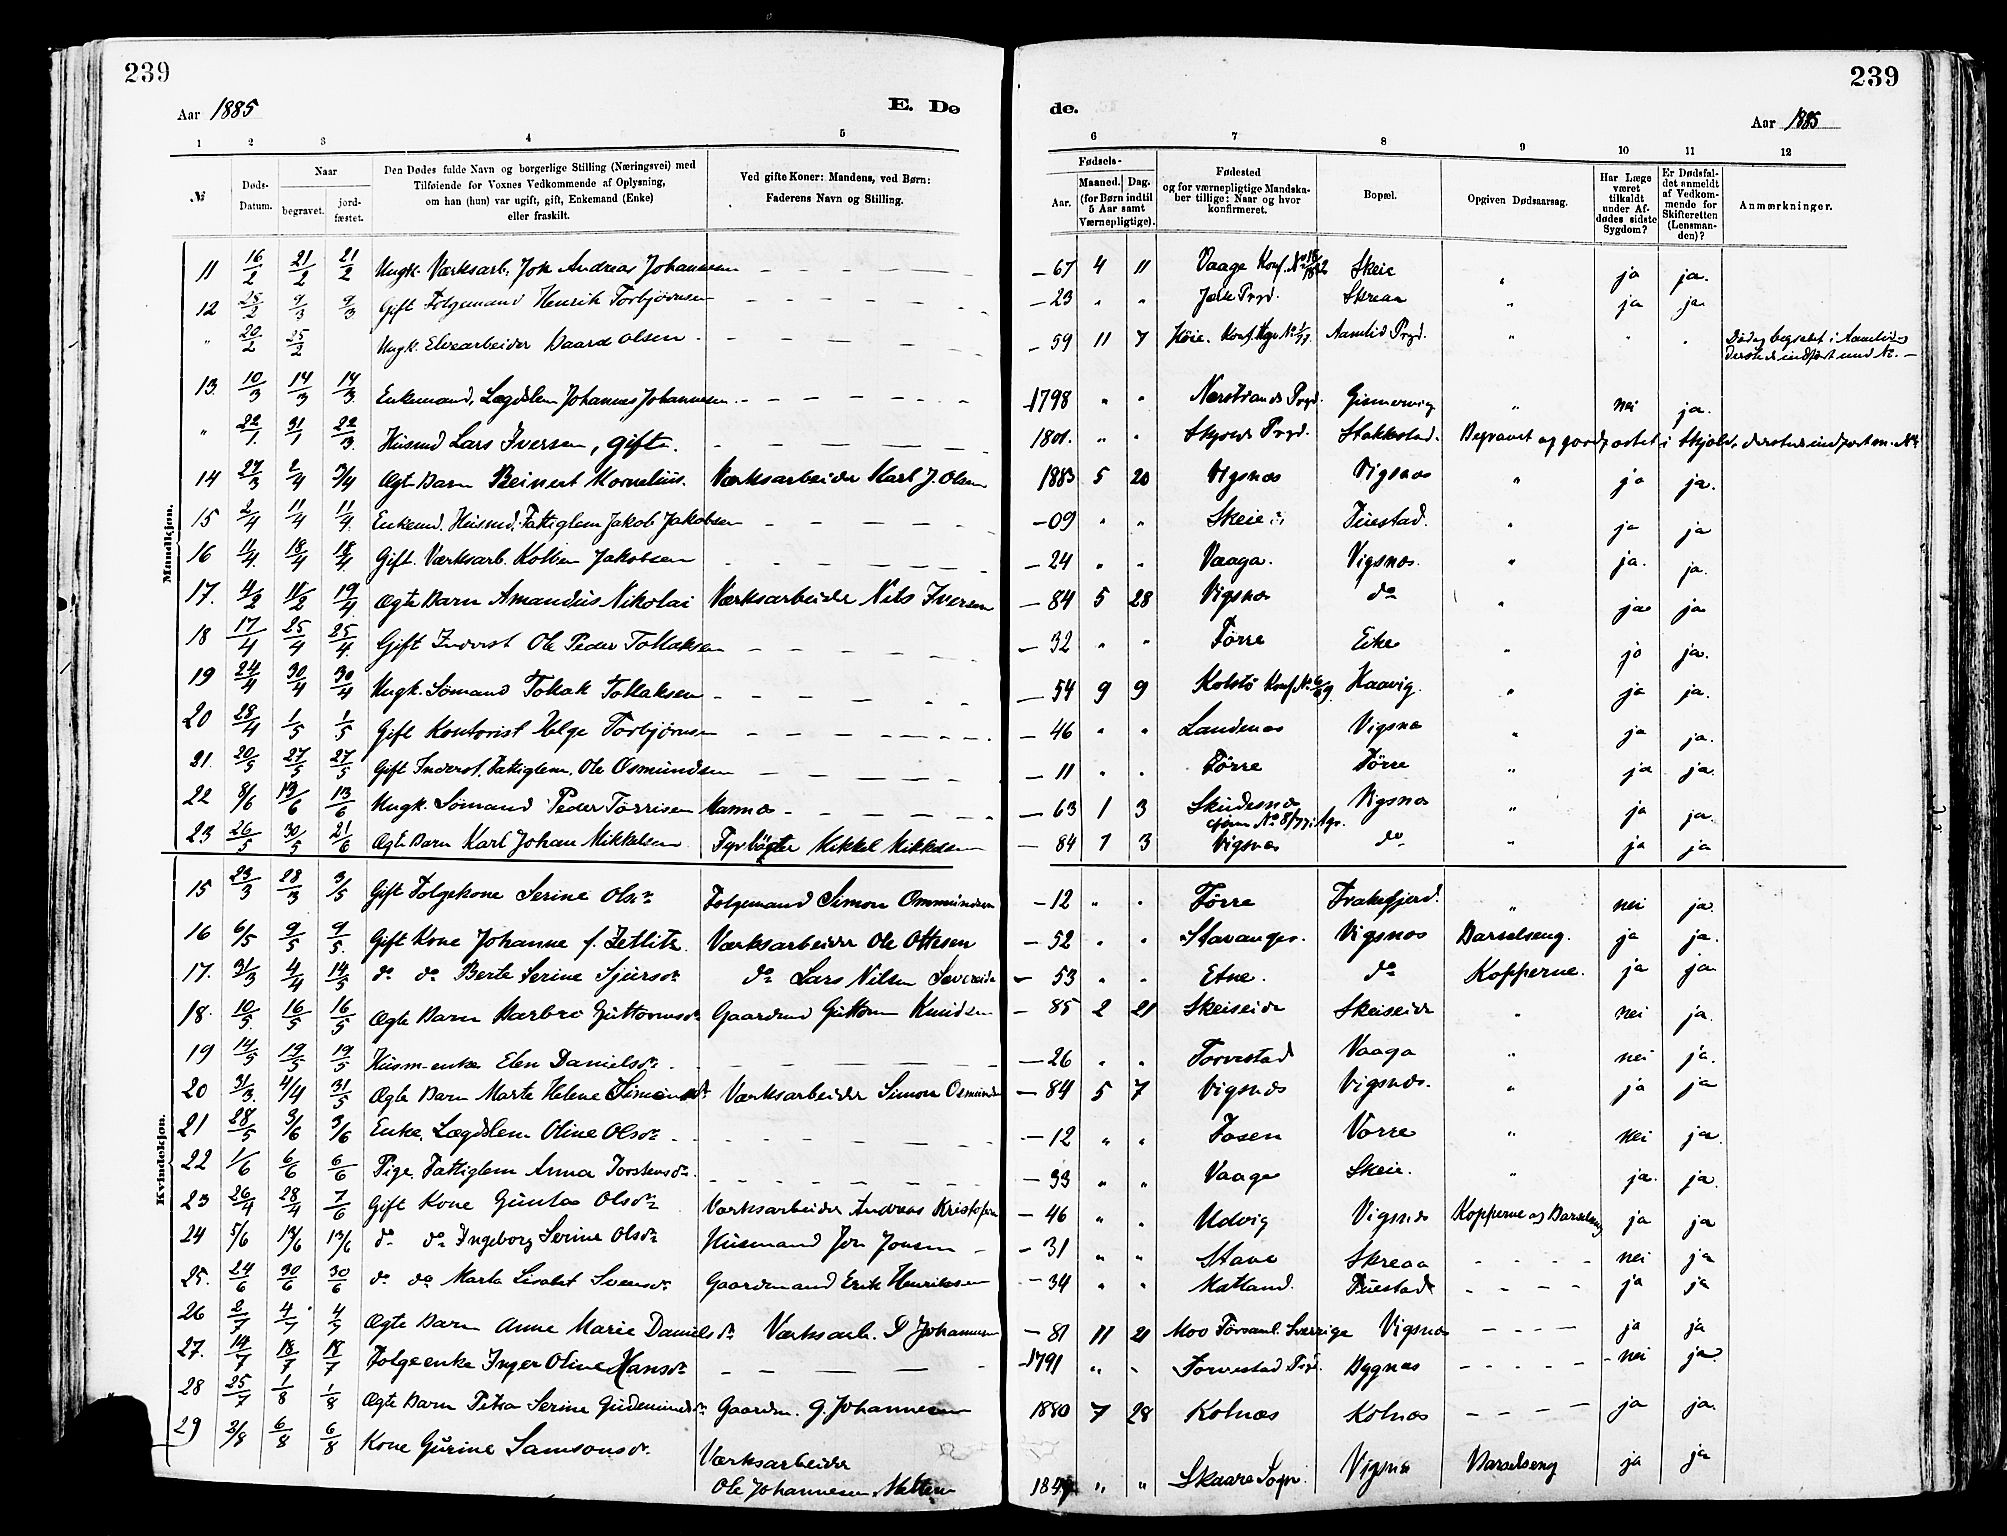 239
239
Aar 1885
E. Dø
de.
Aar 1885
1 2 3 4 5 6 7 8 9 10 11 12
№
Døds-Datum.
Naar
begravet.
jord-fæstet.
Den Dødes fulde Navn og borgerlige Stilling (Næringsvei) med
Tilføiende for Voxnes Vedkommende af Oplysning,
om han (hun) var ugift, gift, Enkemand (Enke)
eller fraskilt.
Ved gifte Koner: Mandens, ved Børn:
Faderens Navn og Stilling.
Fødsels-
Aar.
Maaned. Dag.
(for Børn indtil
5 Aar samt
Værnepligtige).
Fødested
og for værnepligtige Mandska-
ber tillige: Naar og hvor
konfirmeret.
Bopæl.
Opgiven Dødsaarsag.
Har Læge
været
tilkaldt
under Af-
dødes sidste
Sygdom?
Er Dødsfal-
det anmeldt
af Vedkom-
mende for
Skifteretten
(Lensman-
den)?
Anmærkninger.
Mandkjøn.
11 16/2 21/2 21/2 Ungk. Værksarb. Joh Andreas Johannesen – 67 4 11 Vaage Konf. Skeie " ja ja.
12 25/2 9/3 9/3 Gift Folgemand Henrik Torbjørnsen – 23 " " Prgd. Skreaa " ja ja
" 20/2 25/2 Ungk. Elvearbeider Baard Olsen – 59 11 7 Høie. Konf. Aamlid Prgd. " " " Død og begravet i Aamlid,
derstes indført und No. –
13. 10/3 14/3 14/3 Enkemand, Lægdslem Johannes Johannesen – 1798 " " Nærstrands Prgd. Gismervig " nei ja.
" 22/1 31/1 22/3 Husmd Lars Iversen, gift. 1801. " " Skjold Prgd. Stakkestad. Begravet og jordfæstet i Skjold, derstes indført
14 27/3 2/4 3/4 Ægte Barn Reinert Kornelius. Værksarbeider Karl J. Olsen 1883 5 20 Vigsnæs Vigsnæs " ja ja.
15 2/4 11/4 11/4 Enkemd. Husmd. Fattiglem Jakob Jakobsen – 09 " " Skeie Tuestad. " ja ja
16 11/4 18/4 18/4 Gift. Værksarb. Kolben Jakobsen – 24 " " Vaaga. Vigsnæs. " ja. ja.
17. 4/2 11/2 19/4 Ægte Barn Amandus Nikolai Værksarbeider Nils Iversen – 84 5 28 Vigsnæs do " ja ja
18 17/4 25/4 25/4 Gift Inderst Ole Peder Tollaksen – 32 " " Førre Eike " ja ja.
19 24/4 30/4 30/4 Ungk. Sømand Tollak Tollaksen – 54 9 9 Kolstø Konf. Haavig. " ja ja.
20 28/4 1/5 1/5 Gift Kontorist Helge Torbjørnsen – 46 " " Landenæs Vigsnæs " ja ja.
21. 20/5 27/5 27/5 Gift Inderst. Fattiglem. Ole Osmundsen – 11 " " Førre Førre " ja ja.
22 8/6 13/6 13/6 Ungk. Sømand Peder Torrisen Mannes – 63 1 3 Skudesnæs Vigsnæs " ja ja.
23 26/5 30/5 21/6 Ægte Barn Karl Johan Mikkelsen Fyrbøgter Mikkel Mikkelsen – 84 7 3 Vigsnæs do " ja ja
Kvindekjøn.
15 23/3 28/3 3/5 Gift Folgekone Serine Olsdr Folgemand Simon Ommundsen – 12 " " Førre Frakkefjord. " nei ja.
16 6/5 9/5 9/5 Gift Kone Johanne f. Zetlitz Værksarbeider Ole Ottesen – 52 " " Stavanger. Vigsnæs Barselseng. ja ja.
17. 31/3 4/4 14/5 do do Berte Serine Sjursdr do Lars Nilsen Sævereide – 53 " " Etne. do Kopperne. ja ja.
18. 10/5 16/5 16/5 Ægte Barn Barbro Guttormsdr Gaardmd Guttorm Knudsen – 85 2 21 Skeiseide Skeiseide " nei ja.
19 14/5 19/5 19/5 Husm-enke Elen Danielsdr. – 26 " " Torvestad Vaaga " nei ja.
20 31/3. 4/4 31/5 Ægte Barn Marte Helene Simonsdr. Værksarbeider Simon Osmunds – 84 5 7 Vigsnæs Vigsnæs. " ja ja
21 28/5 3/6 3/6 Enke. Lægdslem Oline Olsdr – 12 " " Jøsen Vorre " nei ja.
22 1/6 6/6 6/6 Pige. Fattiglem Anna Torstensdr – 33 " " Vaage Skeie. " ja. ja.
23 26/4 28/4 7/6 Gift Kone Guntas Olsdr Værksarbeider Andreas Kristofersen – 46 " " Udvig Vigsnæs Kopperne og Barselseng ja ja
24 5/6 13/6 13/6 do do Ingeborg Serine Olsdr Husmand Jon Jonsen – 31 " " Stave Skreaa nei ja
25. 24/6 30/6 30/6 do do Marta Lisabet Svensdr Gaardmand Erik Henriksen – 34 " " Matland. Tuestad ja ja
26 2/7 4/7 4/7 Ægte Barn Anne Marie Danielsdr Værksarb. D Johannesen – 81 11 21 Moo Førsaml. Sverrige Vigsnæs ja ja
27. 14/7 18/7 18/7 Folgeenke Inger Oline Hansdr – 1791 " " Torvestad Prgd. Bygnæs nei ja.
28 25/7 1/8 1/8 Ægte Barn Petra Serine Gudmundsdr Gaardm. G. Johannesen 1880 7 28 Kolnæs Kolnæs ja ja.
29 3/8 6/8 6/8 Kone Gurine Samsonsdr. Værksarbeider
Ole Johannesen " " Skaare Sogn. Vigsnæs Barselseng ja ja